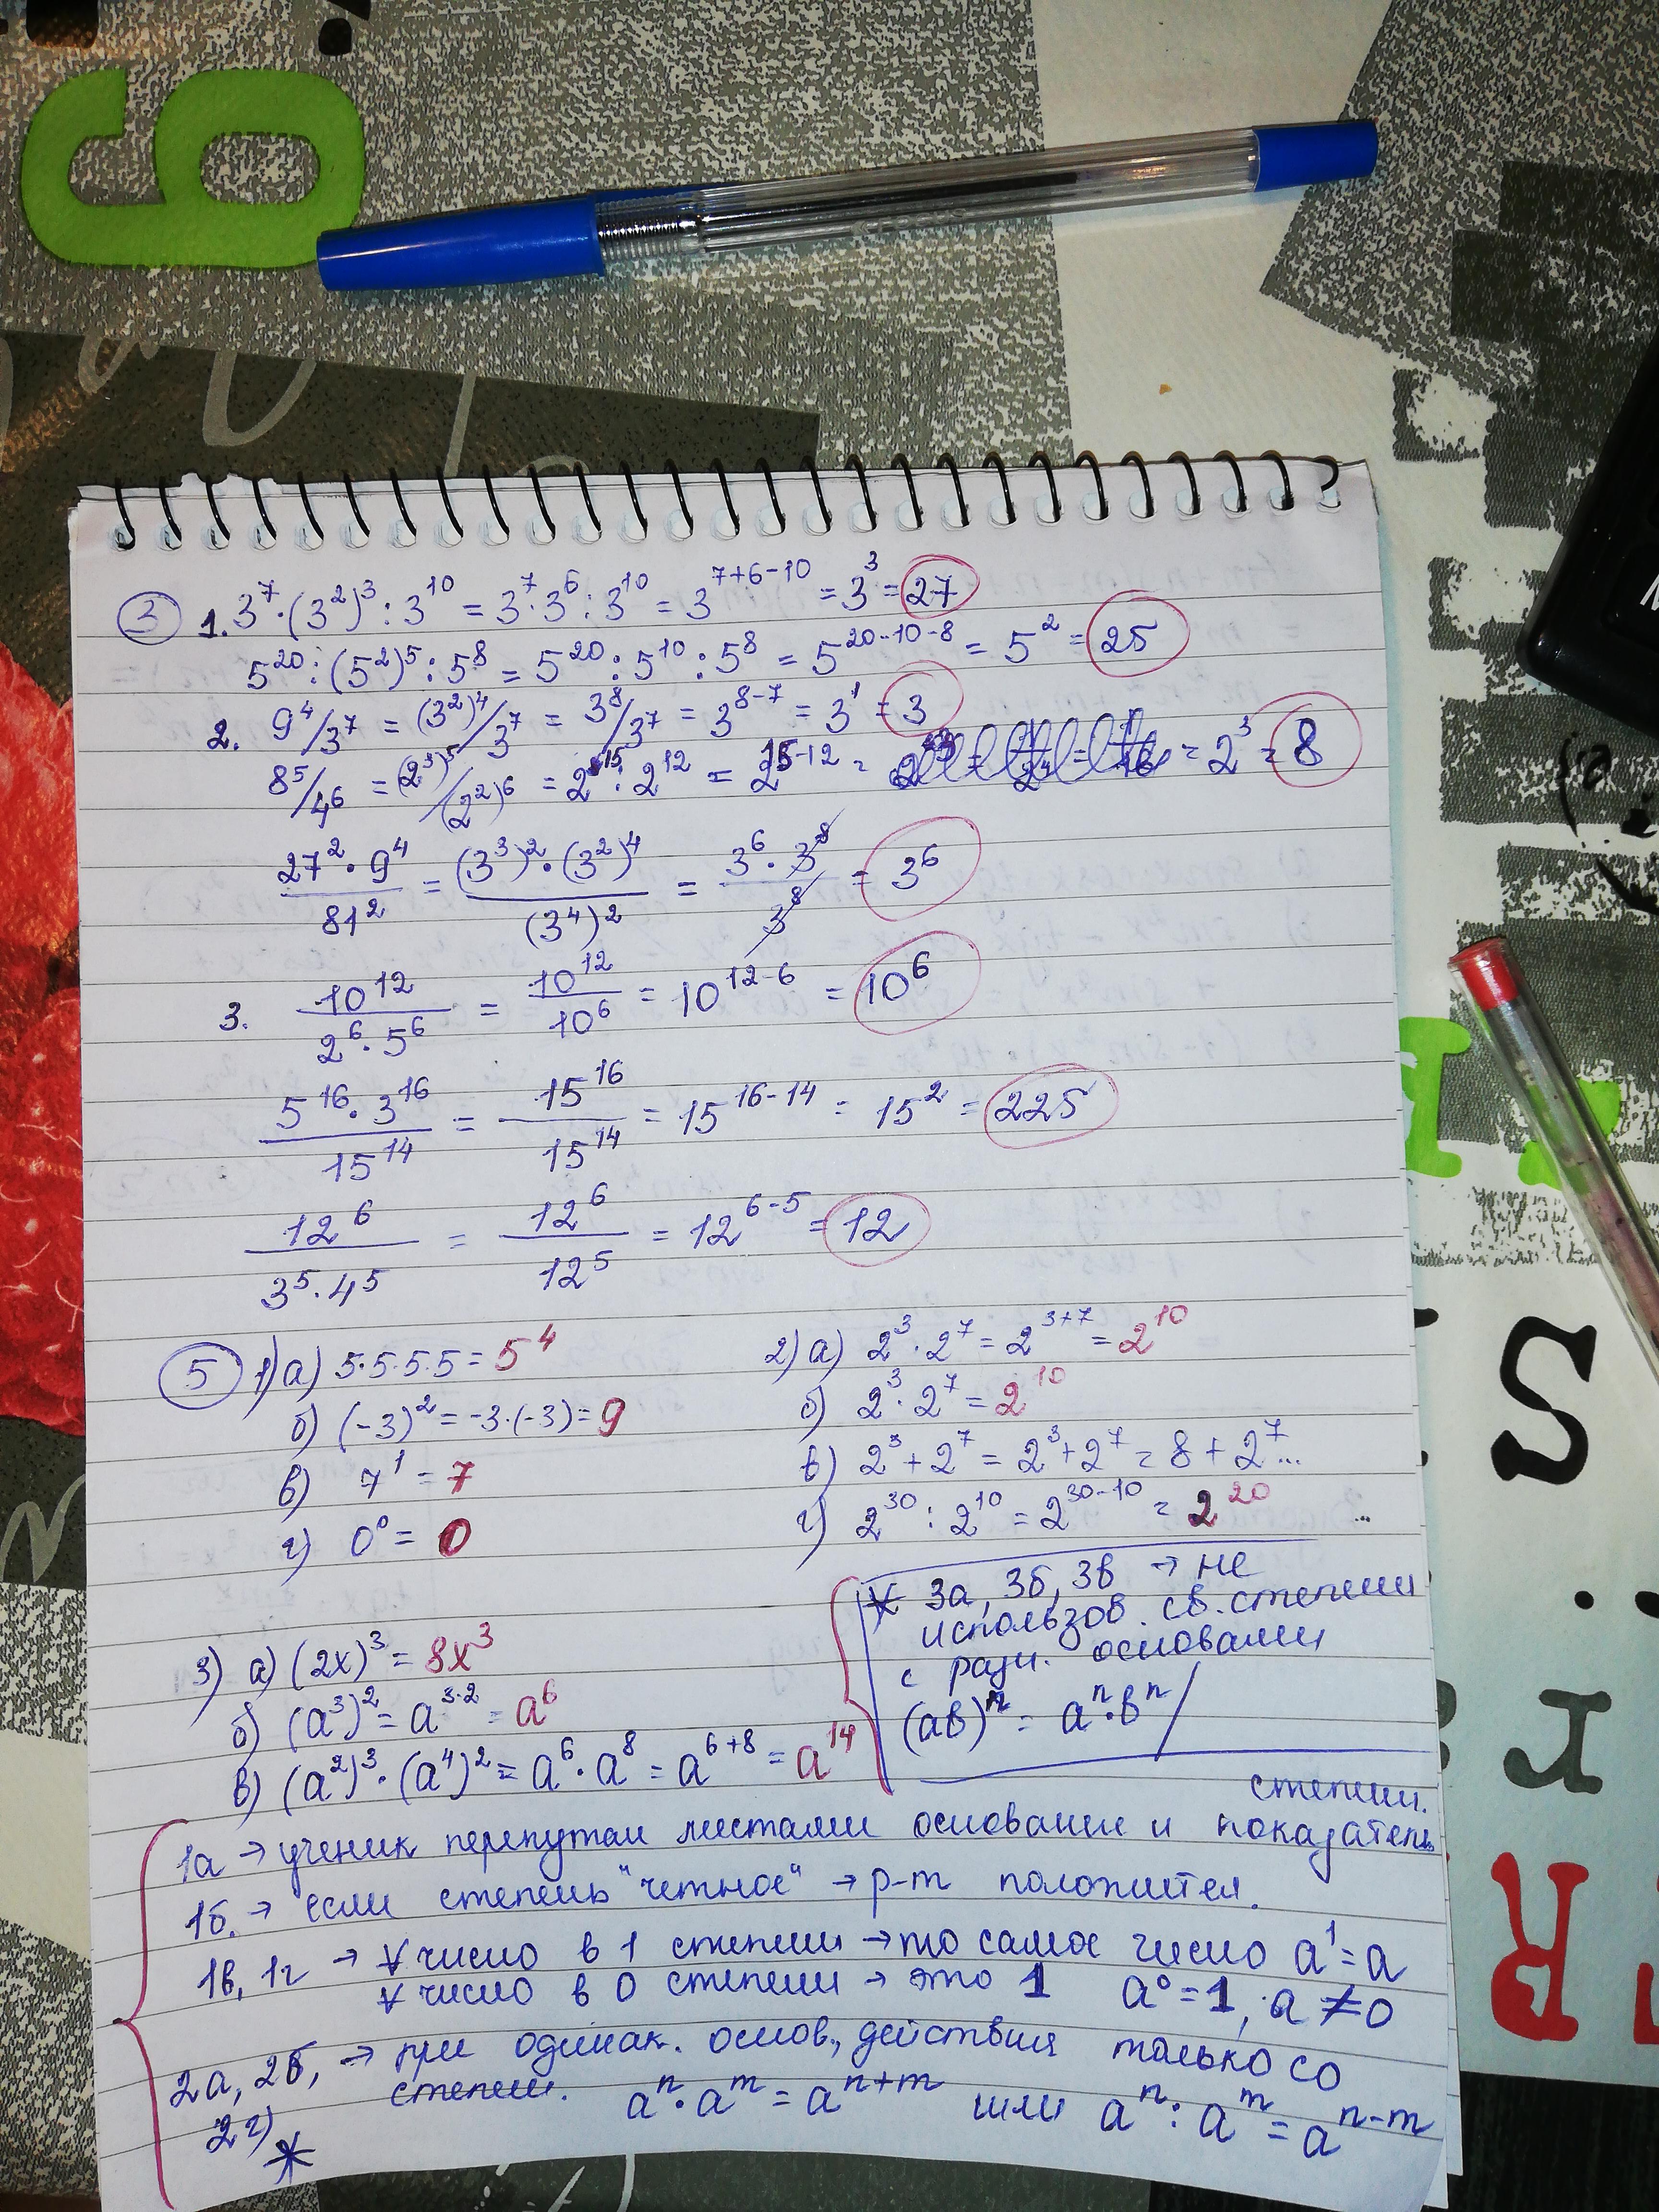 3 1. 3⁷·(3²)³:3¹⁰ = 3⁷·3⁶:3¹⁰ = 3⁷⁺⁶⁻¹⁰ = 3³ = 27
5²⁰:(5²)⁵:5⁸ = 5²⁰:5¹⁰:5⁸ = 5²⁰⁻¹⁰⁻⁸ = 5² = 25
2. 9⁴/3⁷ = (3²)⁴/3⁷ = 3⁸/3⁷ = 3⁸⁻⁷ = 3¹ = 3
8⁵/4⁶ = (2³)⁵/(2²)⁶ = 2¹⁵:2¹² = 2¹⁵⁻¹² = = 2³ = 8
27²·9⁴/81² = (3³)²·(3²)⁴/(3⁴)² = 3⁶·3⁸/3⁸ = 3⁶
3. 10¹²/2⁶·5⁶ = 10¹²/10⁶ = 10¹²⁻⁶ = 10⁶
5¹⁶·3¹⁶/15¹⁴ = 15¹⁶/15¹⁴ = 15¹⁶⁻¹⁴ = 15² = 225
12⁶/3⁵·4⁵ = 12⁶/12⁵ = 12⁶⁻⁵ = 12
5 1) а) 5·5·5·5 = 5⁴
б) (-3)² = -3·(-3) = 9
в) 7¹ = 7
г) 0⁰ = 0
2) а) 2³·2⁷ = 2³⁺⁷ = 2¹⁰
б) 2³·2⁷ = 2¹⁰
в) 2³+2⁷ = 2³+2⁷ = 8+2⁷...
г) 2³⁰:2¹⁰ = 2³⁰⁻¹⁰ = 2²⁰ ...
3) а) (2x)³ = 8x³
б) (a³)² = a³·² = a⁶
в) (a²)³·(a⁴)² = a⁶·a⁸ = a⁶⁺⁸ = a¹⁴
* 3а, 3б, 3в → не
использов. св. степени
с разн. основами
(ab)ⁿ = aⁿ·bⁿ/
степени.
1а → ученик перепутал местами основание и показатель
1б. → если степень "четное" → р-т положител.
1в, 1г → ∀ число в 1 степени → то самое число a¹=a
∀ число в 0 степени → это 1 a⁰=1, a≠0
2а, 2б, → при одинак. основ., действия только со
2г) степени. aⁿ·aᵐ = aⁿ⁺ᵐ или aⁿ:aᵐ = aⁿ⁻ᵐ
*